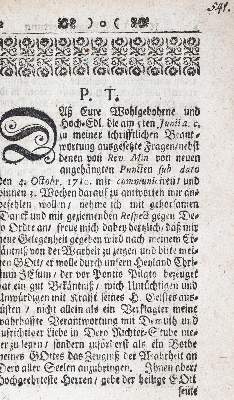 541.
) o (
P. T.
Aß Eure Wohlgebohrne und
Hoch-Edl. die am 5ten Junii a. c.
zu meiner schrifftlichen Verant-
wortung ausgesetzte Fragen/nebst
denen von Rev. Min von neuen
angehängten Puncten sub dato
den 4. Octobr. 171 mir communiciret/ und
binnen 3. Wochen darauf zu antworten mir an-
befehlen wollen/ nehme ich mit gehorsamen
Danck und mit geziemenden Respect gegen De-
ro Ordre an/ freue mich dabey hertzlich/ daß mir
neue Gelegenheit gegeben wird nach meinem Er-
käntniß von der Warheit zu zeugen und bitte mei-
nen GOtt/ er wolle durch unsern Heyland Chri-
stum JEsum/ der vor Pontio Pilato bezeuget
hat ein gut Bekäntniß/ mich Untüchtigen und
Unwürdigen mit Krafft seines H. Geistes aus-
rüsten/ nicht allein als ein Verklagter meine
wahrhaffte Verantwortung mit Demuth und
aufrichtiger Liebe in Dero Richter-Stube nie-
der zu legen/ sondern zuförderst als ein Bothe
meines GOttes das Zeugniß der Wahrheit an
Dero aller Seelen anzubringen. Ihnen aber/
Hochgeehrteste Herren/ gebe der heilige GOtt
seine